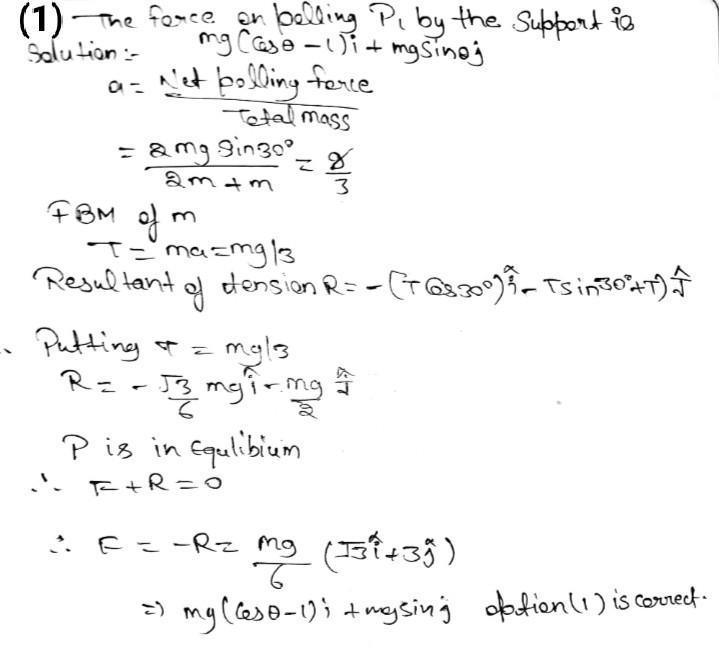 (1) The force on polling P₁ by the Support is
Solution :- mg(cosθ - 1)i + mgsinθj
a = Net polling force
Total mass
= 2mg Sin30° = g
2m + m 3
FBM of m
T = ma = mg/3
Resultant of tension R = -(T cos30°)î - Tsin30° + T)ĵ
Putting T = mg/3
R = - √3 mg î - mg ĵ
6 2
P is in Equlibium
∴ F + R = 0
∴ F = -R = mg (√3î + 3ĵ)
6
=> mg(cosθ - 1)i + mgsinj option(1) is correct.